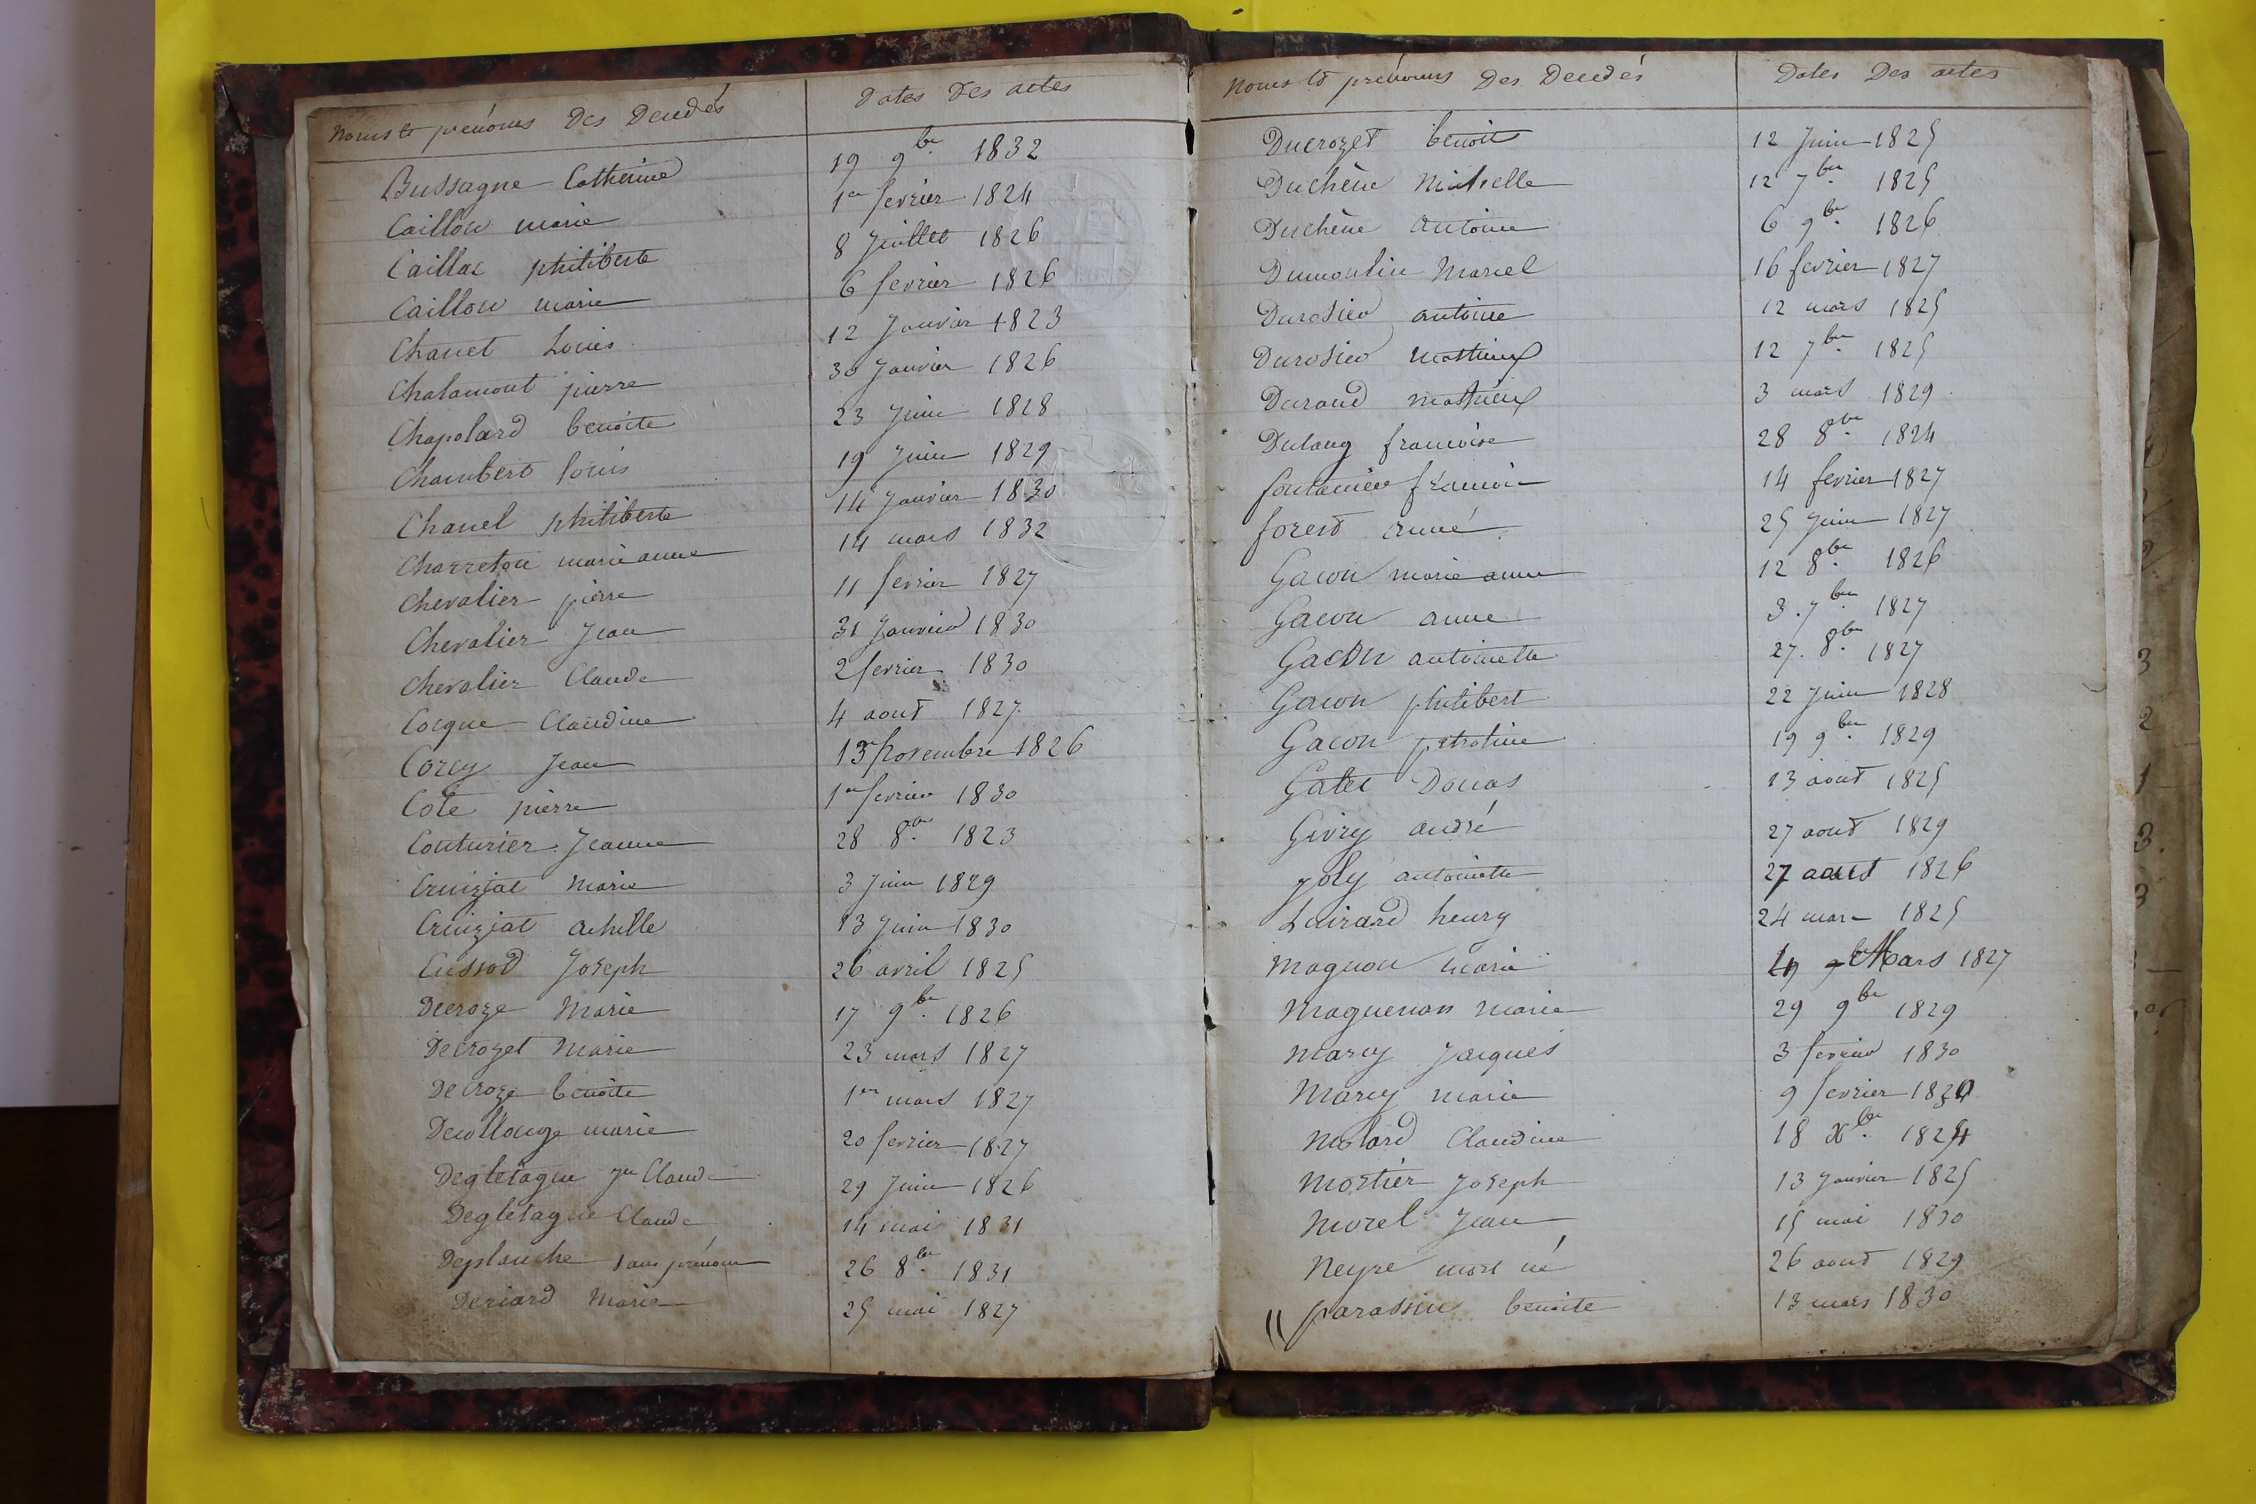 Noms et prénoms Des Décédés Dates Des actes
Bussagne Catherine 19 9bre 1832
Caillou marie 1er fevrier 1824
Caillac philiberte 8 Juillet 1826
Caillou marie 6 fevrier 1826
Chanet Louis 12 Janvier 1823
Chalamont pierre 30 Janvier 1826
Chapolard benoite 23 Juin 1828
Chambert louis 19 Juin 1829
Chanel philiberte 14 Janvier 1830
Charreton marie anne 14 mars 1832
Chevalier pierre 11 fevrier 1827
Chevalier Jean 31 Janvier 1830
Chevalier Claude 2 fevrier 1830
Cocque Claudine 4 aout 1827
Corcy Jean 13 Novembre 1826
Cote pierre 1er fevrier 1830
Couturier Jeanne 28 8bre 1823
Cruizjat Marie 3 Juin 1829
Cruizjat achille 13 Juin 1830
Cussod Joseph 26 avril 1825
Decroze Marie 17 9bre 1826
Decrozet Marie 23 mars 1827
Decroze benoite 1er mars 1827
Decollonge marie 20 fevrier 1827
Degletagne Jn Claude 29 Juin 1826
Degletagne Claude 14 mai 1831
Deplanche sans prénom 26 8bre 1831
Deriard Marie 25 mai 1827
Noms et prénoms Des Décédés Dates Des actes
Ducrozet benoit 12 Juin 1825
Duchêne 12 7bre 1825
Duchêne Antoine 6 9bre 1826
Dumoulin Marcel 16 fevrier 1827
Durosier antoine 12 mars 1825
Durosier Mathieux 12 7bre 1825
Durand mathieux 3 mars 1829
Dutang francoise 28 8bre 1824
14 fevrier 1827
forest aimé 25 Juin 1827
Gacon marie anne 12 8bre 1826
Gacon anne 3. 7bre 1827
Gacon antoinette 27. 8bre 1827
Gacon philibert 22 Juin 1828
Gacon petroline 19 9bre 1829
Gatet Donas 13 aout 1825
Givry andré 27 aout 1829
Joly antoinette 27 aout 1826
Luirard henry 24 mars 1825
Magnon marie 19 Mars 1827
Maguenan marie 29 9bre 1829
Marcy Jacques 3 fevrier 1830
Marcy marie 9 fevrier 1830
Molard Claudine 18 Xbre 1824
Mortier Joseph 13 Janvier 1825
Morel Jean 15 mai 1830
Neyre mort né 26 aout 1829
parassin benoite 13 mars 1830